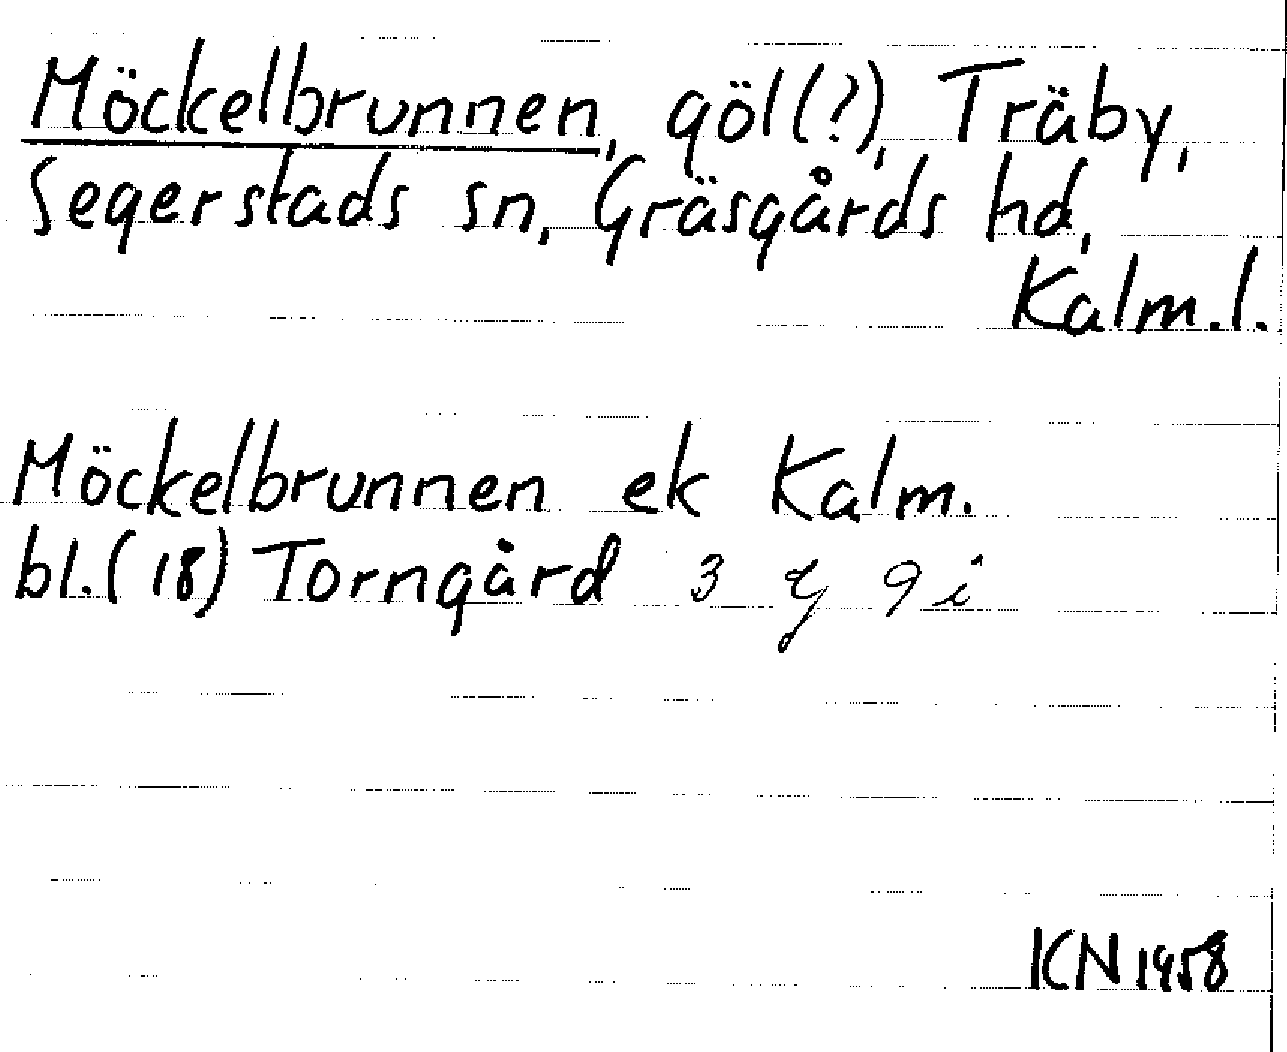 Möckelbrunnen, göl(?), Träby,
Segerstads sn, Gräsgårds hd,
Kalm.l.
Möckelbrunnen ek Kalm.
bl.(18) Torngård 3 g 9 i
KN 1958